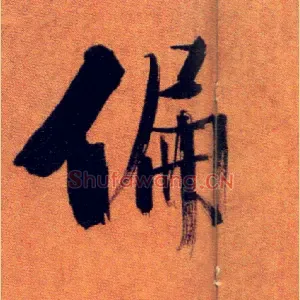 偏
Shufawang.CN